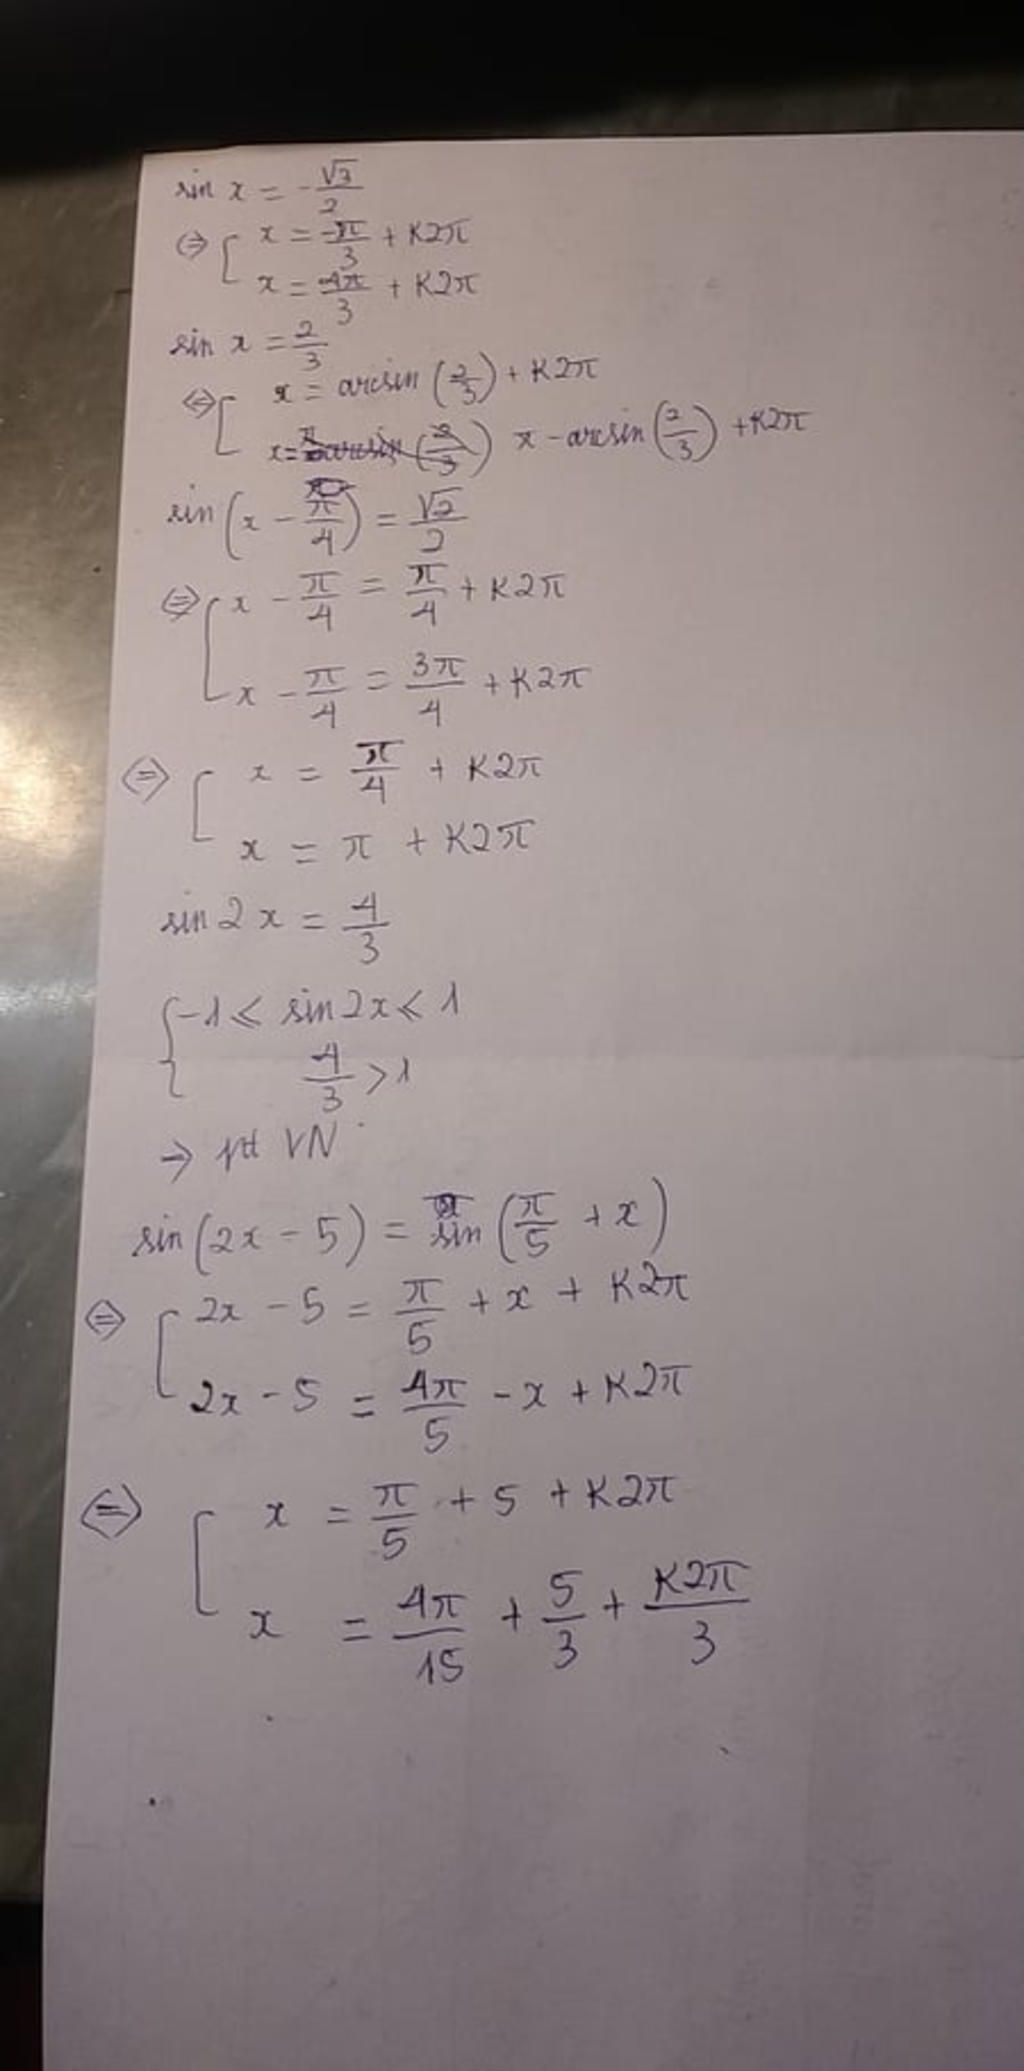 sin x = -√3/2
⇔ [ x = -π/3 + K2π
x = 4π/3 + K2π
sin x = 2/3
⇔ [ x = arcsin (2/3) + K2π
x = π - arcsin (2/3) + K2π
sin (x - π/4) = √2/2
⇔ [ x - π/4 = π/4 + K2π
x - π/4 = 3π/4 + K2π
⇔ [ x = π/4 + K2π
x = π + K2π
sin 2x = 4/3
{ -1 ≤ sin 2x ≤ 1
4/3 > 1
→ pt VN
sin (2x - 5) = sin (π/5 + x)
⇔ [ 2x - 5 = π/5 + x + K2π
2x - 5 = 4π/5 - x + K2π
⇔ [ x = π/5 + 5 + K2π
x = 4π/15 + 5/3 + K2π/3